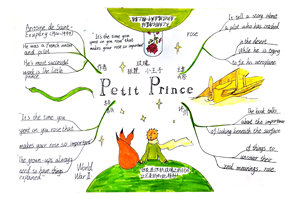 Antoine de Saint-
Exupéry (1900-1944)
He was a French writer
and pilot
He's most successful
work is The little
prince
"It's the time you
spent on you rose that
makes your rose so important
rose
玫瑰
小王子
Petit Prince
To tell a story about
a pilot who has crashed
in the desert
while he is trying
to fix his aeroplane
"It's the time you
spent on you rose that
makes your rose so important
The grown-ups always
need to have things
explained"
World
War II
The book talks
about the importance
of looking beneath the surface
of things to
uncover their
real meanings. rose